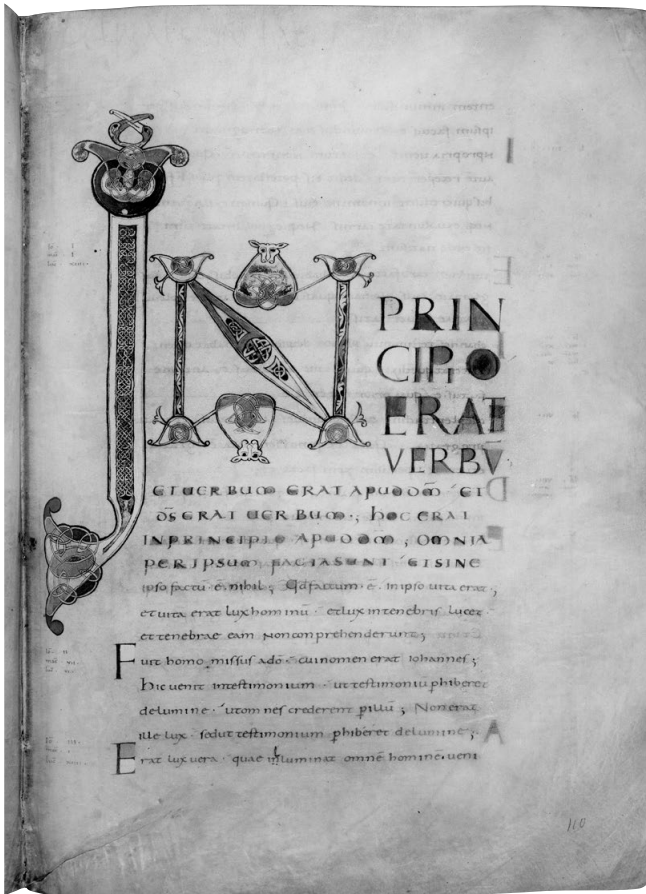 IN PRIN
CIPIO
ERAT
VERBŪ
ETUERBUM ERAT APUDDM̄ · ET
D̄S ERAT UERBUM ·; hOC ERAT
INPRINCIPIO APUDDM̄ ; OMNIA
PER IPSUM FACTASUNT · ETSINE
ipso factū · ē · nihil ; Qd̄factum · ē · inipso uita erat ;
etuita erat lux hominū · etlux intenebris lucet ·
ettenebrae eam nonconprehenderunt ;
Fuit homo missus adō · cuinomen erat iohannes ;
hicuenit intestimonium · ut testimoniū phiberet
delumine · utomnes crederent p illū ; Nonerat
ille lux · sedut testimonium phiberet delumine ;
Erat lux uera · quae inluminat omnē hominē · ueni
110